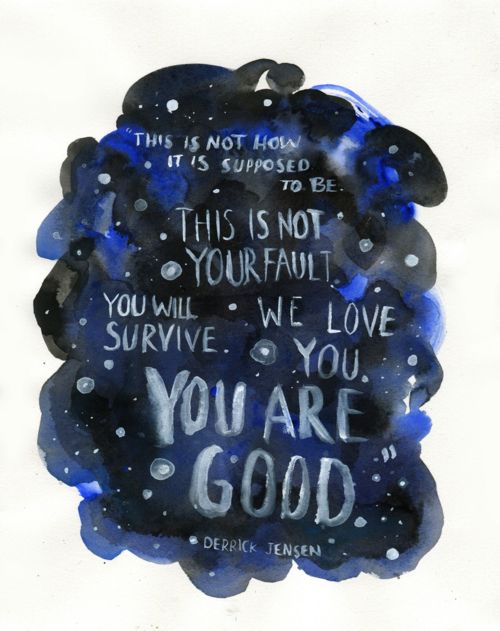 "THIS IS NOT HOW
IT IS SUPPOSED
TO BE.
THIS IS NOT
YOUR FAULT
YOU WILL
SURVIVE.
WE LOVE
YOU.
YOU ARE
GOOD"
DERRICK JENSEN